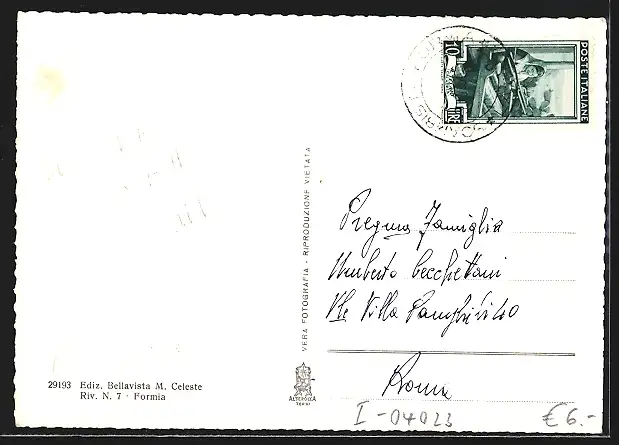 10
LIRE
POSTE ITALIANE
VERA FOTOGRAFIA - RIPRODUZIONE VIETATA
Pregma Famiglia
Umberto Cecchettani
Vle Villa Pamphili 40
Roma
29193 Ediz. Bellavista M. Celeste
Riv. N. 7 - Formia
ALTEROCCA
TERNI
I-04023
€ 6.-